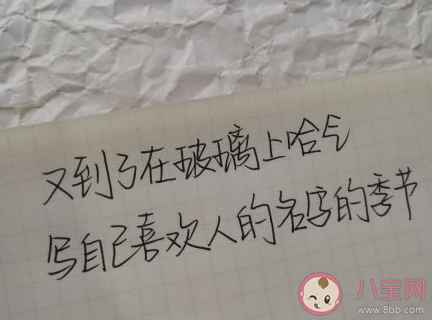 又到了在玻璃上哈气
写自己喜欢人的名字的季节
八宝网
www.8bb.com